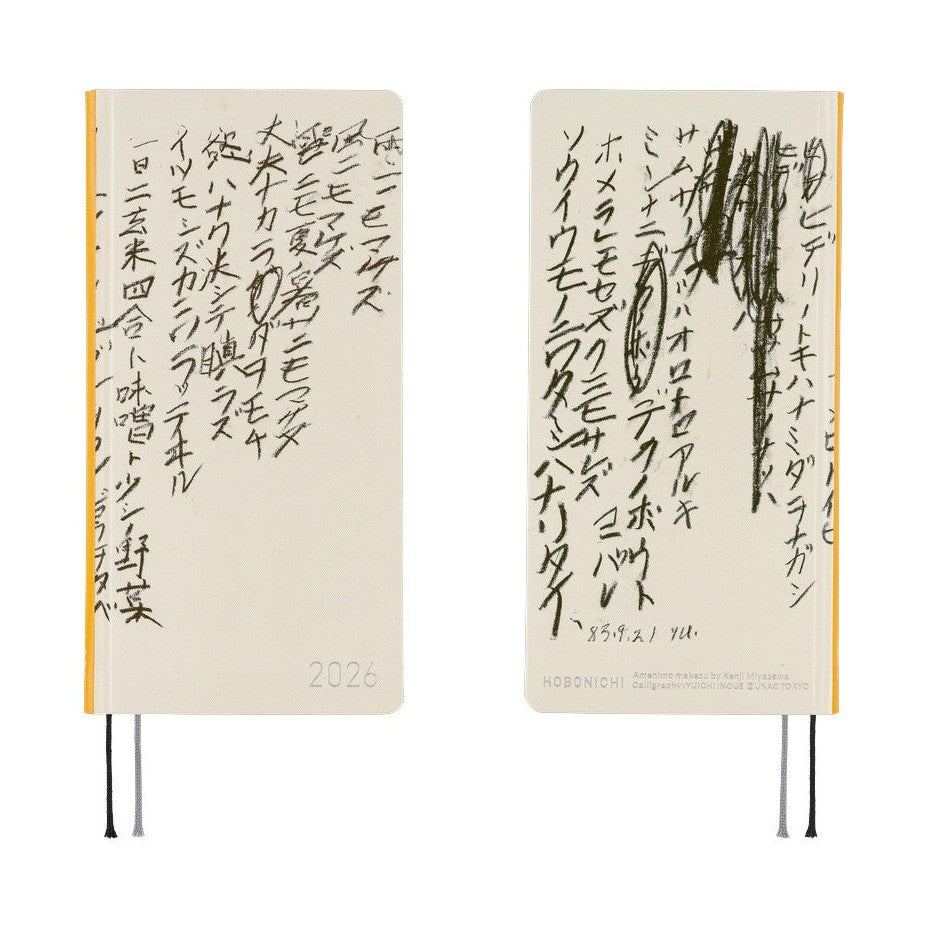 雨ニモマケズ
風ニモマケズ
雪ニモ夏ノ暑サニモマケズ
丈夫ナカラダヲモチ
慾ハナク決シテ瞋ラズ
イツモシズカニワラッテヰル
一日ニ玄米四合ト味噌ト少シノ野菜
タベ
2026
ヒデリノトキハナミダヲナガシ
サムサノナツハオロオロアルキ
ミンナニデクノボウト
ヨバレ
ホメラレモセズクニモサレズ
ソウイウモノニワタシハナリタイ
83.9.21 yu.
HOBONICHI
Amenimo makezu by Kenji Miyazawa
Calligraphy:YUICHI INOUE ©UNAC TOKYO